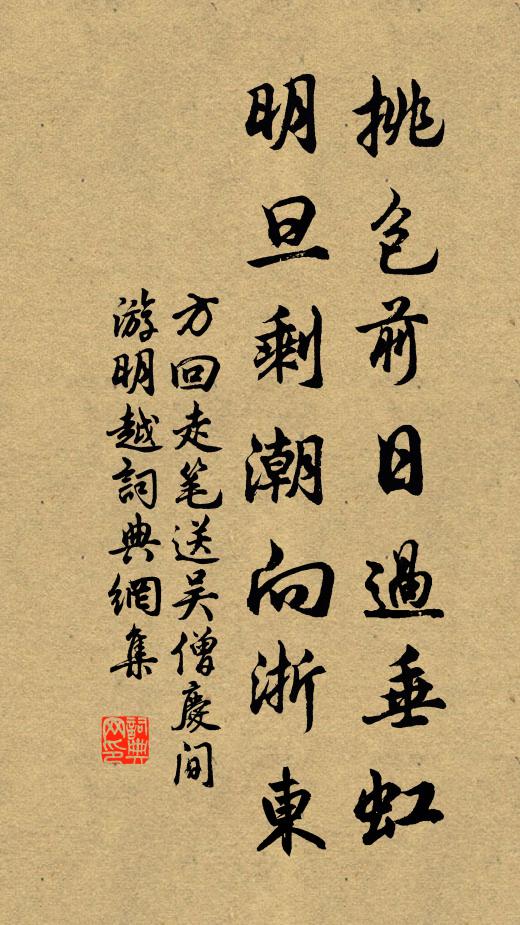 挑包前日過垂虹
明旦剩潮向浙東
方回走笔送吴僧慶间
游明越詞典網集
詞典网印